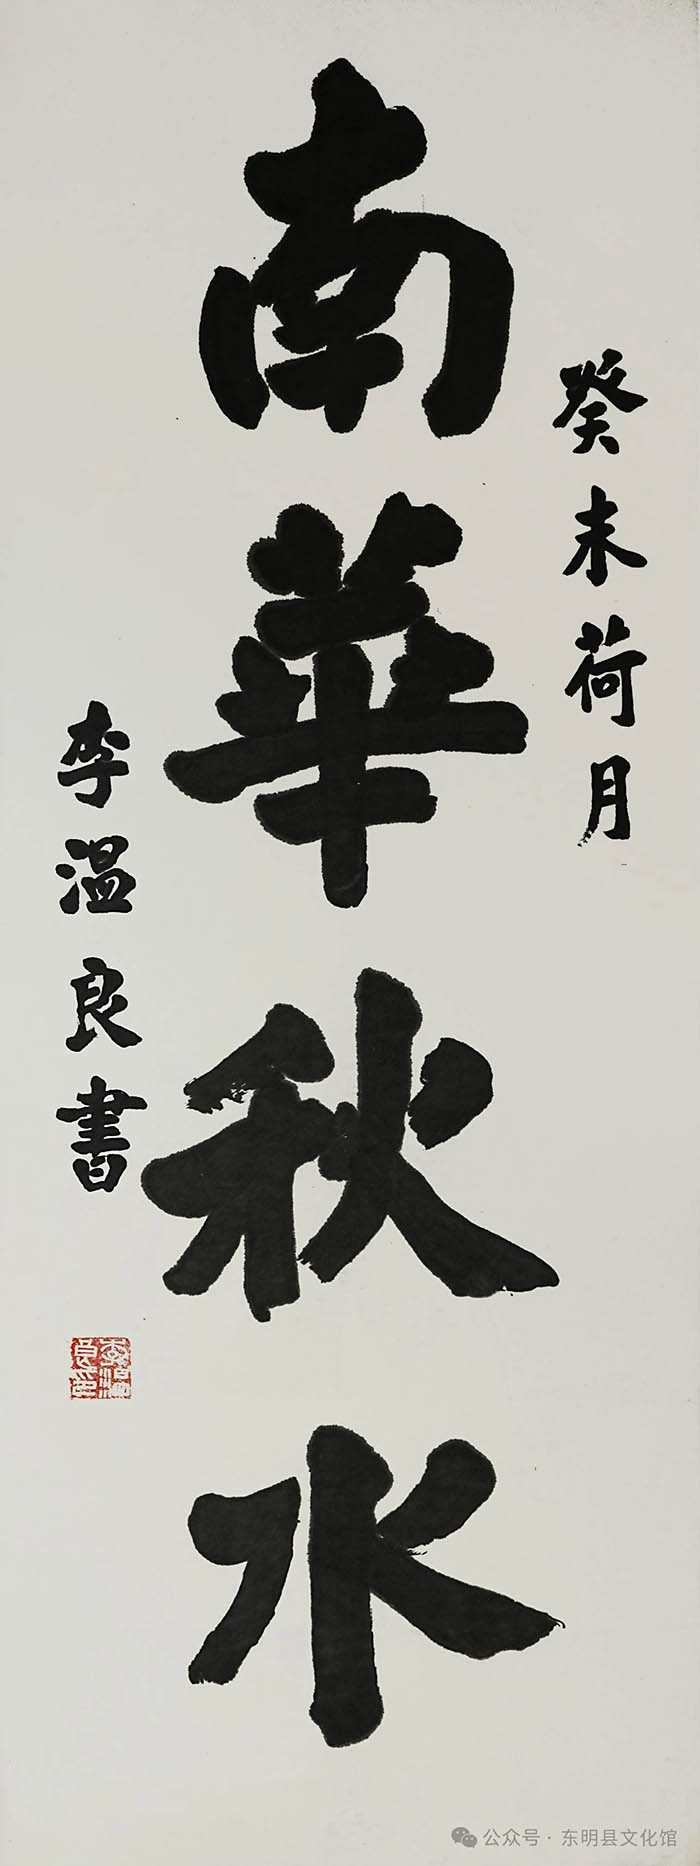 癸未荷月
南華秋水
李温良書
李温良印
公众号·东明县文化馆